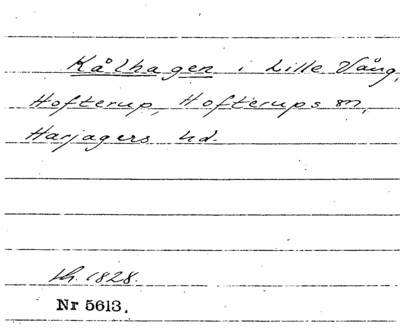 Kålhagen i Lille Vång,
Hofterup, Hofterups sn,
Harjagers hd.
1828.
Nr 5613.